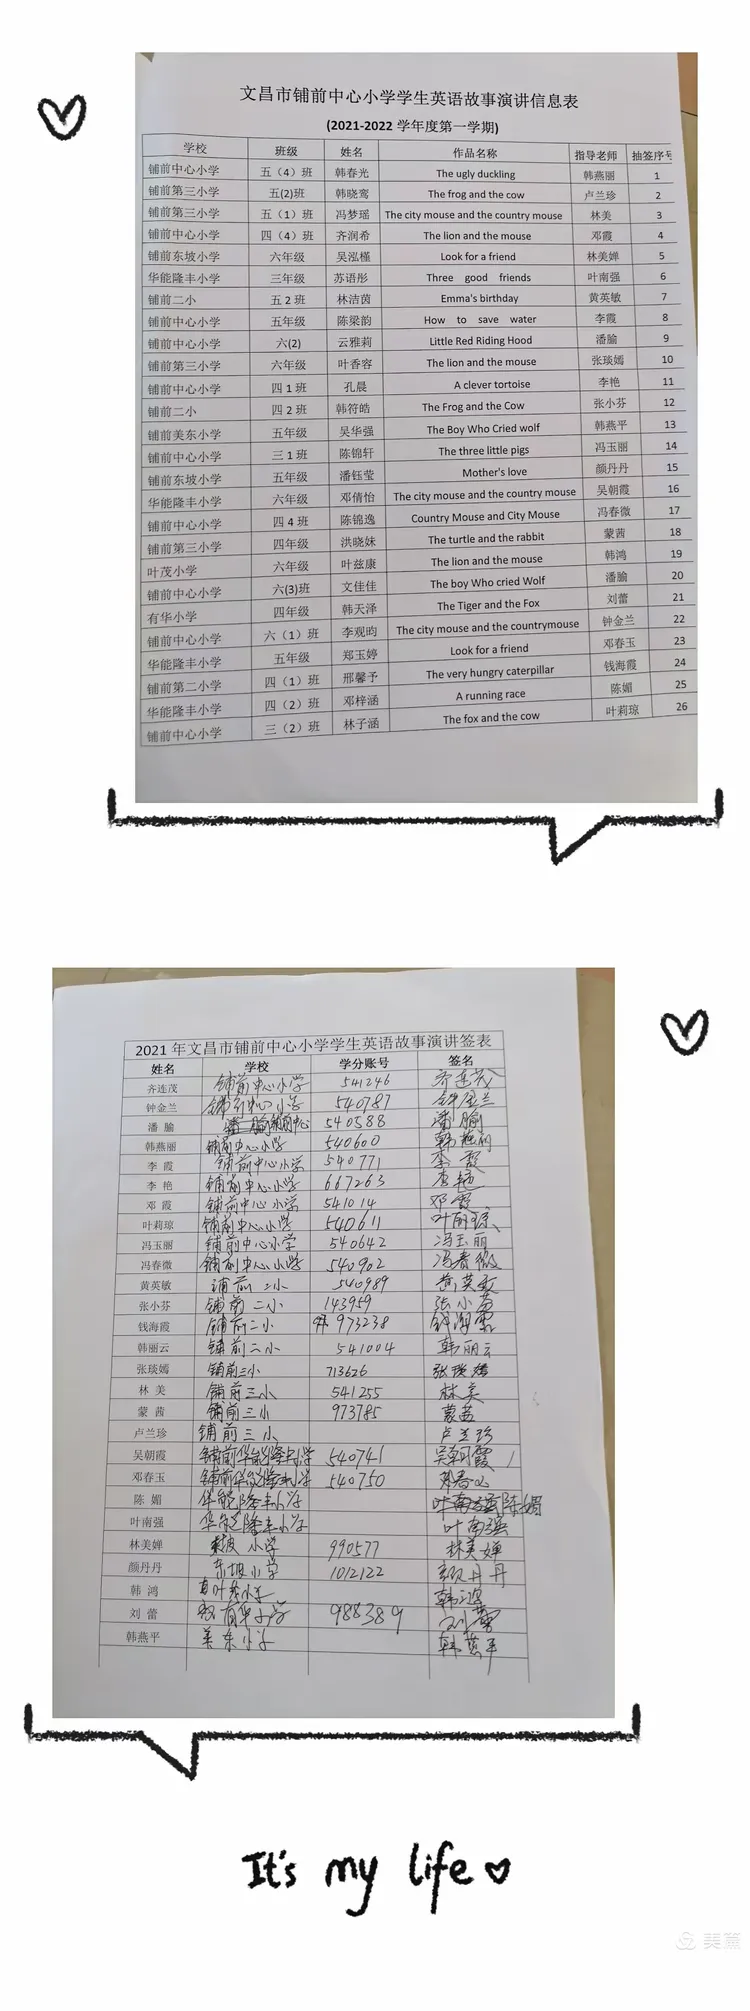 文昌市铺前中心小学学生英语故事演讲信息表
(2021-2022 学年度第一学期)
学校 班级 姓名 作品名称 指导老师 抽签序号
铺前中心小学 五（4）班 韩春光 The ugly duckling 韩燕丽 1
铺前第三小学 五(2)班 韩晓鸾 The frog and the cow 卢兰珍 2
铺前第三小学 五（1）班 冯梦瑶 The city mouse and the country mouse 林美 3
铺前中心小学 四（4）班 齐润希 The lion and the mouse 邓霞 4
铺前东坡小学 六年级 吴泓槿 Look for a friend 林美婵 5
华能隆丰小学 三年级 苏语彤 Three good friends 叶南强 6
铺前二小 五 2 班 林洁茵 Emma's birthday 黄英敏 7
铺前中心小学 五年级 陈梁韵 How to save water 李霞 8
铺前中心小学 六(2) 云雅莉 Little Red Riding Hood 潘腧 9
铺前第三小学 六年级 叶香容 The lion and the mouse 张琰嫣 10
铺前中心小学 四 1 班 孔晨 A clever tortoise 李艳 11
铺前二小 四 2 班 韩符皓 The Frog and the Cow 张小芬 12
铺前美东小学 五年级 吴华强 The Boy Who Cried wolf 韩燕平 13
铺前中心小学 三 1 班 陈锦轩 The three little pigs 冯玉丽 14
铺前东坡小学 五年级 潘钰莹 Mother's love 颜丹丹 15
华能隆丰小学 六年级 邓倩怡 The city mouse and the country mouse 吴朝霞 16
铺前中心小学 四 4 班 陈锦逸 Country Mouse and City Mouse 冯春微 17
铺前第三小学 四年级 洪晓妹 The turtle and the rabbit 蒙茜 18
叶茂小学 六年级 叶兹康 The lion and the mouse 韩鸿 19
铺前中心小学 六(3)班 文佳佳 The boy Who cried Wolf 潘腧 20
有华小学 四年级 韩天泽 The Tiger and the Fox 刘蕾 21
铺前中心小学 六（1）班 李观昀 The city mouse and the countrymouse 钟金兰 22
华能隆丰小学 五年级 郑玉婷 Look for a friend 邓春玉 23
铺前第二小学 四（1）班 邢馨予 The very hungry caterpillar 钱海霞 24
华能隆丰小学 四（2）班 邓梓涵 A running race 陈媚 25
铺前中心小学 三（2）班 林子涵 The fox and the cow 叶莉琼 26
2021 年文昌市铺前中心小学学生英语故事演讲签表
姓名 学校 学分账号 签名
齐连茂 铺前中心小学 541246 齐连茂
钟金兰 铺前中心小学 540787 钟金兰
潘 腧 铺前中心 540588 潘腧
韩燕丽 铺前中心小学 540600 韩燕丽
李 霞 铺前中心小学 540771 李霞
李 艳 铺前中心小学 667263 李艳
邓 霞 铺前中心小学 541014 邓霞
叶莉琼 铺前中心小学 540611 叶莉琼
冯玉丽 铺前中心小学 540642 冯玉丽
冯春微 铺前中心小学 540902 冯春微
黄英敏 铺前二小 540989 黄英敏
张小芬 铺前二小 143959 张小芬
钱海霞 铺前二小 973238 钱海霞
韩丽云 铺前二小 541004 韩丽云
张琰嫣 铺前三小 713626 张琰嫣
林 美 铺前三小 541255 林美
蒙 茜 铺前三小 973785 蒙茜
卢兰珍 铺前三小 卢兰珍
吴朝霞 铺前华能隆丰小学 540741 吴朝霞
邓春玉 铺前华能隆丰小学 540750 邓春玉
陈 媚 华能隆丰小学 陈媚
叶南强 华能隆丰小学 叶南强
林美婵 东坡小学 990577 林美婵
颜丹丹 东坡小学 1012122 颜丹丹
韩 鸿 叶茂小学 韩鸿
刘 蕾 有华小学 988389 刘蕾
韩燕平 美东小学 韩燕平
It's my life
美篇